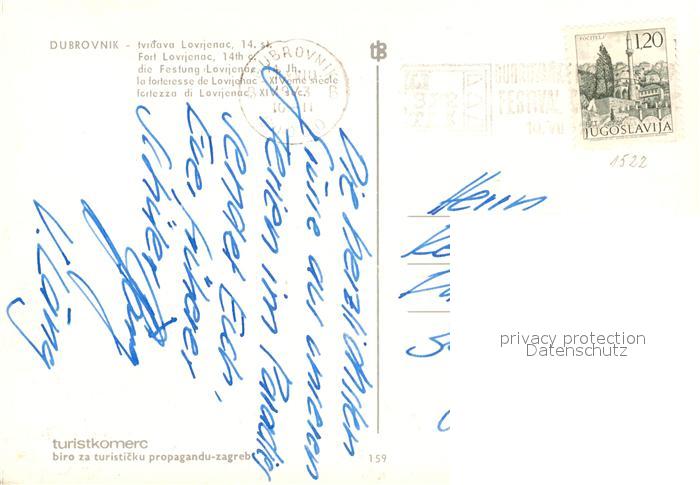 DUBROVNIK - tvrđava Lovrijenac, 14. st.
Fort Lovrijenac, 14th c.
die Festung Lovrijenac, 14. Jh.
la forteresse de Lovrijenac - XIVème siècle
fortezza di Lovrijenac, XIV sec.
DUBROVNIK
FESTIVAL
POČITELJ
1,20
JUGOSLAVIJA
1522
Die herzlichsten
Grüße aus unseren
Ferien im Paradies
sendet Euch,
Euer früherer
Schüler
Herrn
privacy protection
Datenschutz
turistkomerc
biro za turističku propagandu-zagreb
159